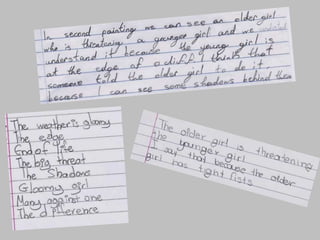 In second painting we can see an older girl
who is threatening a younger girl and we
understand it because the young girl is
at the edge of a cliff. I think that
someone told the older girl to do it,
because I can see some shadows behind them
The weather is gloomy
The edge
End of life
The big threat
The Shadows
Gloomy girl
Many against one
The difference
The older girl is threatening
the younger girl
I say that because the older
girl has tight fists